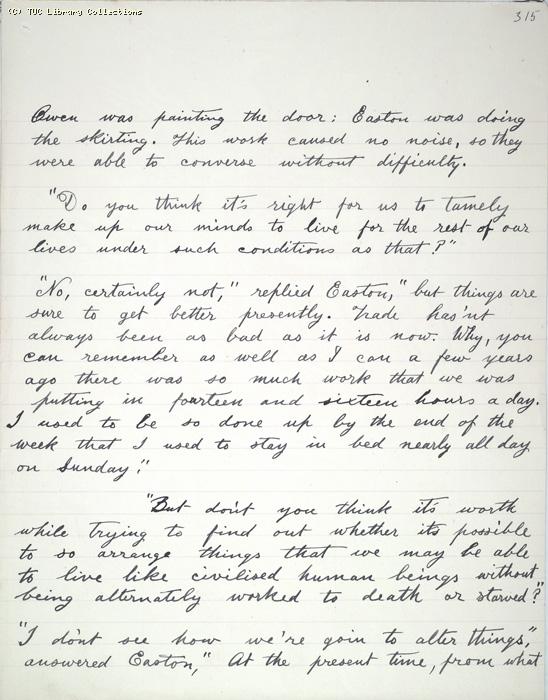 (C) TUC Library Collections
315
Owen was painting the door: Easton was doing
the skirting. This work caused no noise, so they
were able to converse without difficulty.
"Do you think it's right for us to tamely
make up our minds to live for the rest of our
lives under such conditions as that?"
"No, certainly not," replied Easton," but things are
sure to get better presently. Trade has'nt
always been as bad as it is now. Why, you
can remember as well as I can a few years
ago there was so much work that we was
putting in fourteen and sixteen hours a day.
I used to be so done up by the end of the
week that I used to stay in bed nearly all day
on Sunday."
"But don't you think it's worth
while trying to find out whether its possible
to so arrange things that we may be able
to live like civilised human beings without
being alternately worked to death or starved?"
"I don't see how we're goin to alter things,"
answered Easton," At the present time, from what